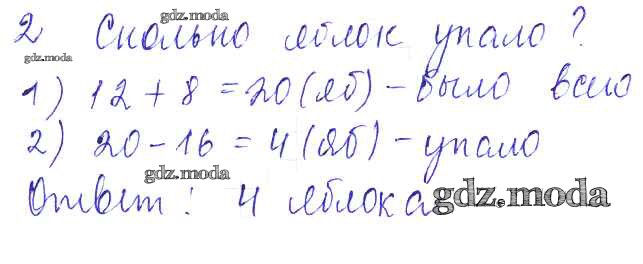 gdz.moda
2 Сколько яблок упало?
gdz.moda
1) 12 + 8 = 20 (яб) - было всего
2) 20 - 16 = 4 (яб) - упало
gdz.moda
Ответ: 4 яблока.
gdz.moda